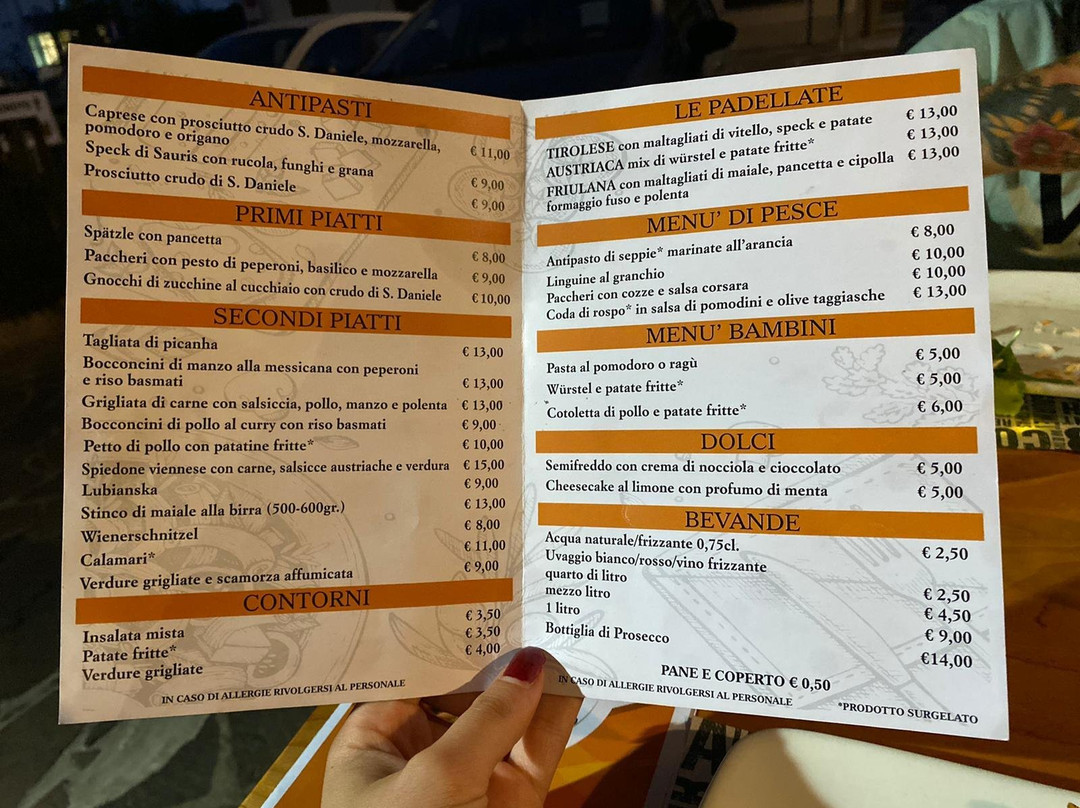 ANTIPASTI
Caprese con prosciutto crudo S. Daniele, mozzarella,
pomodoro e origano € 11,00
Speck di Sauris con rucola, funghi e grana € 9,00
Prosciutto crudo di S. Daniele € 9,00
PRIMI PIATTI
Spätzle con pancetta € 8,00
Paccheri con pesto di peperoni, basilico e mozzarella € 9,00
Gnocchi di zucchine al cucchiaio con crudo di S. Daniele € 10,00
SECONDI PIATTI
Tagliata di picanha € 13,00
Bocconcini di manzo alla messicana con peperoni
e riso basmati € 13,00
Grigliata di carne con salsiccia, pollo, manzo e polenta € 13,00
Bocconcini di pollo al curry con riso basmati € 9,00
Petto di pollo con patatine fritte* € 10,00
Spiedone viennese con carne, salsicce austriache e verdura € 15,00
Lubianska € 9,00
Stinco di maiale alla birra (500-600gr.) € 13,00
Wienerschnitzel € 8,00
Calamari* € 11,00
Verdure grigliate e scamorza affumicata € 9,00
CONTORNI
Insalata mista € 3,50
Patate fritte* € 3,50
Verdure grigliate € 4,00
IN CASO DI ALLERGIE RIVOLGERSI AL PERSONALE
LE PADELLATE
TIROLESE con maltagliati di vitello, speck e patate € 13,00
AUSTRIACA mix di würstel e patate fritte* € 13,00
FRIULANA con maltagliati di maiale, pancetta e cipolla € 13,00
formaggio fuso e polenta
MENU' DI PESCE
Antipasto di seppie* marinate all'arancia € 8,00
Linguine al granchio € 10,00
Paccheri con cozze e salsa corsara € 10,00
Coda di rospo* in salsa di pomodini e olive taggiasche € 13,00
MENU' BAMBINI
Pasta al pomodoro o ragù € 5,00
Würstel e patate fritte* € 5,00
Cotoletta di pollo e patate fritte* € 6,00
DOLCI
Semifreddo con crema di nocciola e cioccolato € 5,00
Cheesecake al limone con profumo di menta € 5,00
BEVANDE
Acqua naturale/frizzante 0,75cl. € 2,50
Uvaggio bianco/rosso/vino frizzante
quarto di litro € 2,50
mezzo litro € 4,50
1 litro € 9,00
Bottiglia di Prosecco €14,00
PANE E COPERTO € 0,50
IN CASO DI ALLERGIE RIVOLGERSI AL PERSONALE
*PRODOTTO SURGELATO